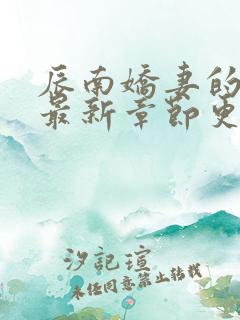 辰南嬌妻的
最新章節更
汐記瑄
未经同意禁止转载